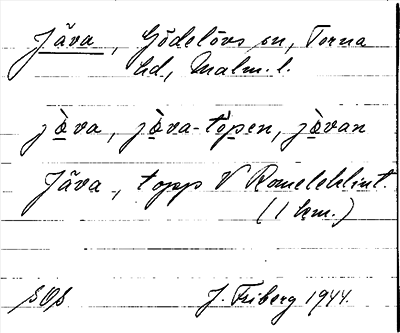 Jäva, Gödelövs sn, Torna
hd., Malm. l.
jòva, jòva-tòpen, jòvan
Jäva, topp V Romeleklint.
(1 km.)
SOS J. Friberg 1944.